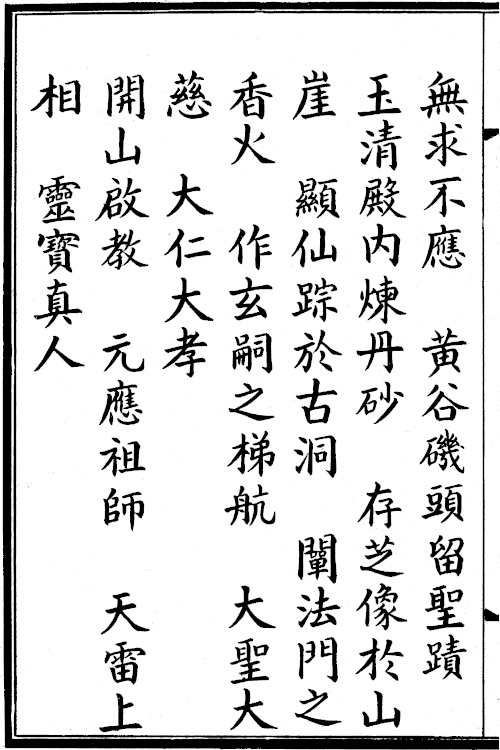 無求不應　黃谷磯頭留聖蹟
玉清殿内煉丹砂　存芝像於山
崖　顯仙踪於古洞　闡法門之
香火　作玄嗣之梯航　大聖大
慈　大仁大孝
開山啟教　元應祖師　天雷上
相　靈寶真人